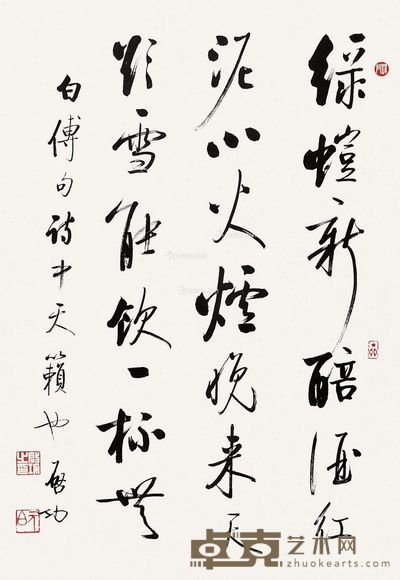 綠螘新醅酒紅
泥小火爐晚来天
欲雪能飲一杯無
白傅句詩中天籟也 啟功
卓克艺术网
www.zhuokearts.com